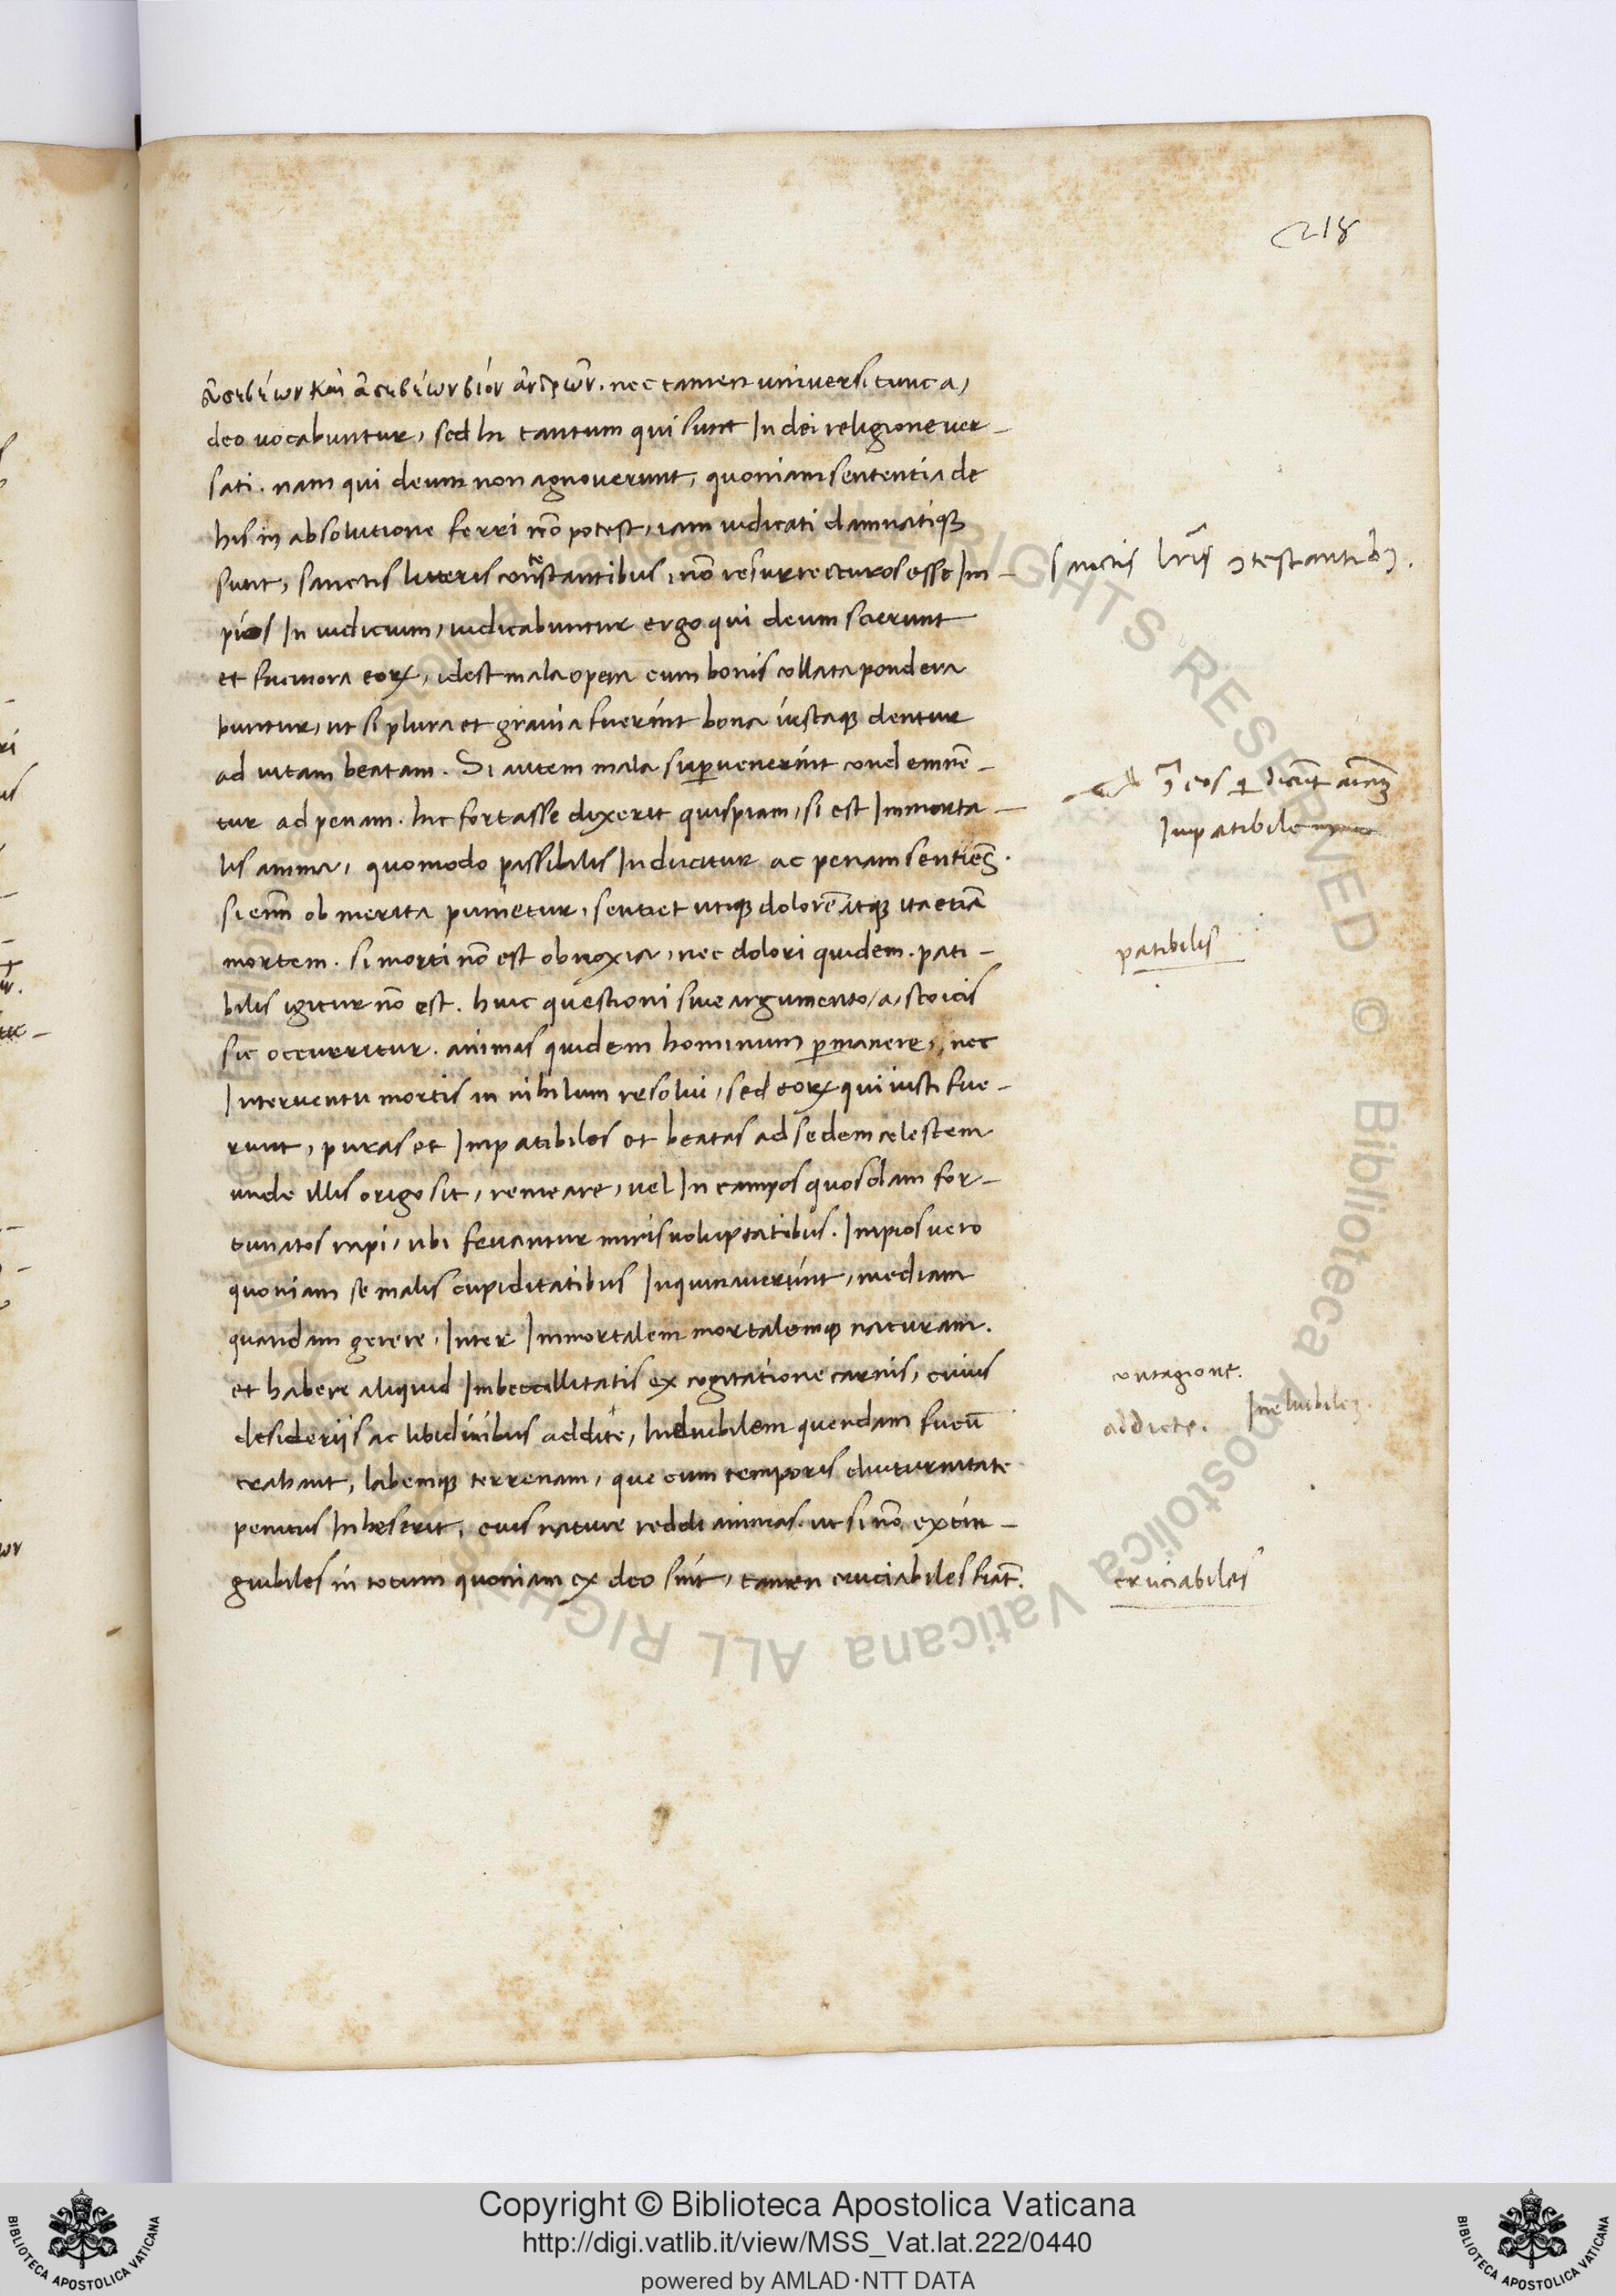 218
ἀσεβέων καὶ ἀσεβέων βίον ἀνδρῶν. nec tamen universi tunc a,
deo vocabuntur, sed hi tantum qui sunt In dei religione ver-
sati. nam qui deum non agnoverunt, quoniam sententia de
his in absolutione ferri nō potest, iam iudicati damnatiqꝫ
sunt, sanctis litteris constantibus, nō resurrecturos esse Im-
te
pios In iudicium, iudicabuntur ergo qui deum scierunt
et facinora eoꝝ, idest mala opera cum bonis collata pondera
buntur, ut si plura et gravia fuerint bona iustaqꝫ dentur
ad vitam beatam. Si autem mala superuenerint condemnē-
tur ad penam. hic fortasse dixerit quispiam, si est Immorta-
lis anima, quomodo passibilis Inducitur ac penam sentiens.
si enim ob merita punietur, sentiet utiqꝫ dolorē atqꝫ ita etiā
mortem. si morti nō est obnoxia, nec dolori quidem. pati-
bilis igitur nō est. huic questioni sive argumento, a, stoicis
sic occurritur. animas quidem hominum permanere, nec
Interventu mortis in nihilum resolui, sed eoꝝ qui iusti fue-
runt, puras et Impatibiles et beatas ad sedem celestem
unde illis origo sit, remeare, vel In campos quosdam for-
tunatos rapi, ubi fruantur miris voluptatibus. Impios vero
quoniam se malis cupiditatibus Inquinaverint, mediam
quandam gerere, Inter Immortalem mortalemqꝫ naturam.
et habere aliquid Imbecillitatis ex cogitatione carnis, cuius
desideriis ac libidinibus addite, Indvibilem quendam fucū
trahant, labemqꝫ terrenam, que cum temporis diuturnitate
penitus Inheserit, eius nature reddi animas. ut si nō extin-
guibiles in totum quoniam ex deo sint, tamen cruciabiles fiāt.
sanctis lr̄is ꝯtestantibꝫ.
ꝯ eos qui dicūt aiam
Impatibile
patibilis
contagione.
addicte. Ineluibilem.
cruciabiles
Copyright © Biblioteca Apostolica Vaticana
http://digi.vatlib.it/view/MSS_Vat.lat.222/0440
powered by AMLAD·NTT DATA
BIBLIOTECA APOSTOLICA VATICANA
BIBLIOTECA APOSTOLICA VATICANA